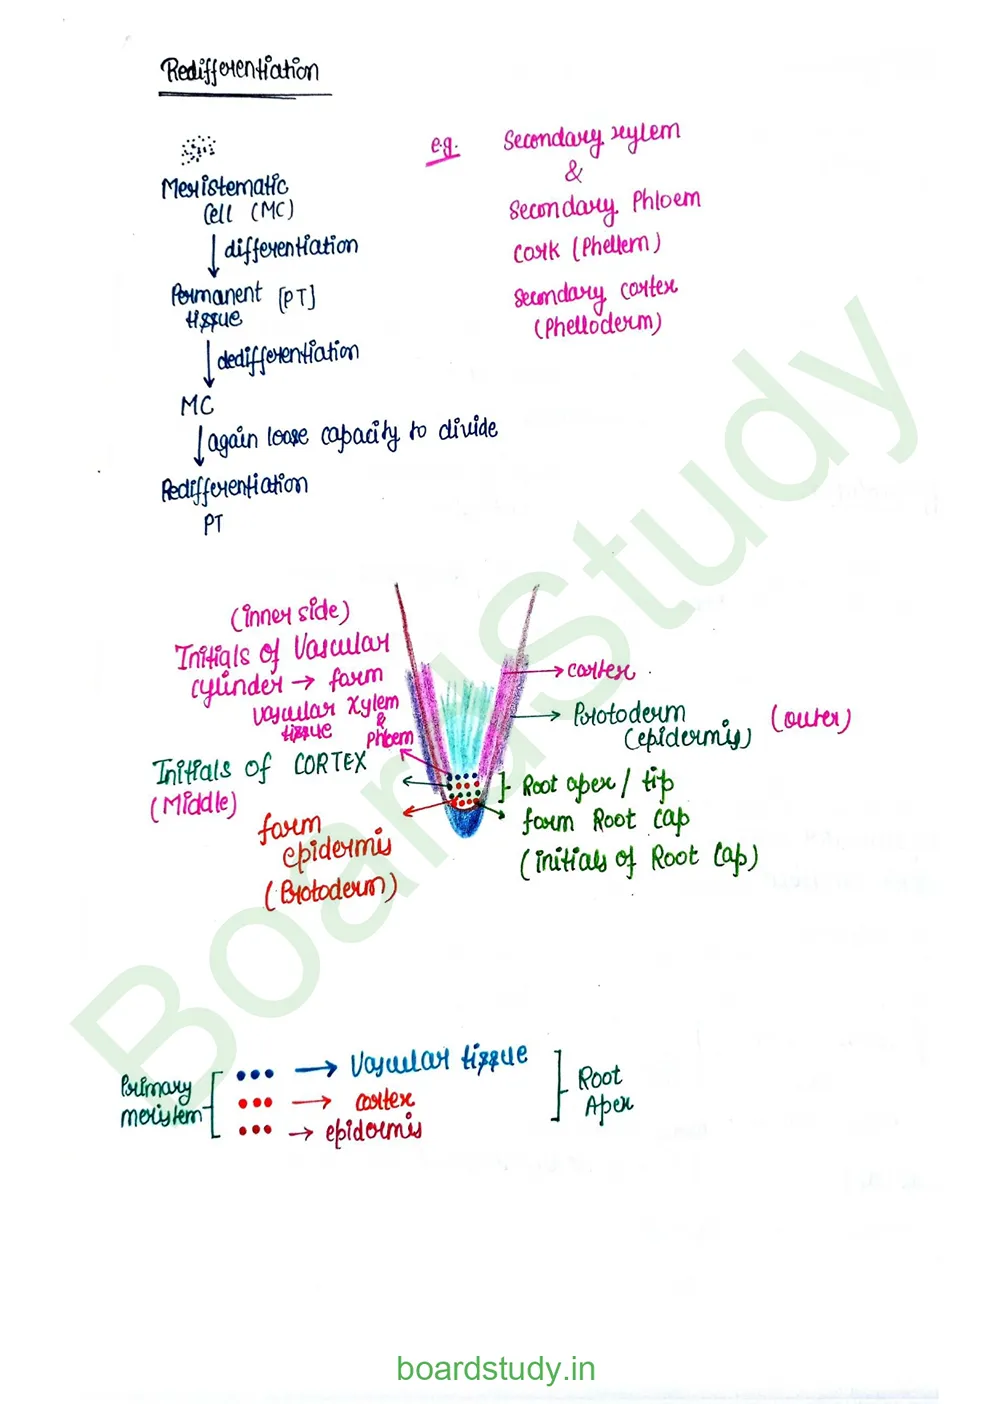 Redifferentiation
Meristematic
Cell (MC)
differentiation
Permanent [PT]
tissue
dedifferentiation
MC
again loose capacity to divide
Redifferentiation
PT
e.g. Secondary xylem
&
Secondary Phloem
Cork (Phellem)
Secondary cortex
(Phelloderm)
(inner side)
Initials of Vascular
cylinder → form
vascular Xylem
tissue & Phloem
Initials of CORTEX
(Middle)
form
epidermis
(Protoderm)
cortex
Protoderm (outer)
(epidermis)
Root apex / tip
form Root cap
(initials of Root Cap)
Primary
meristem
→ Vascular tissue
→ cortex
→ epidermis
Root
Apex
BoardStudy
boardstudy.in